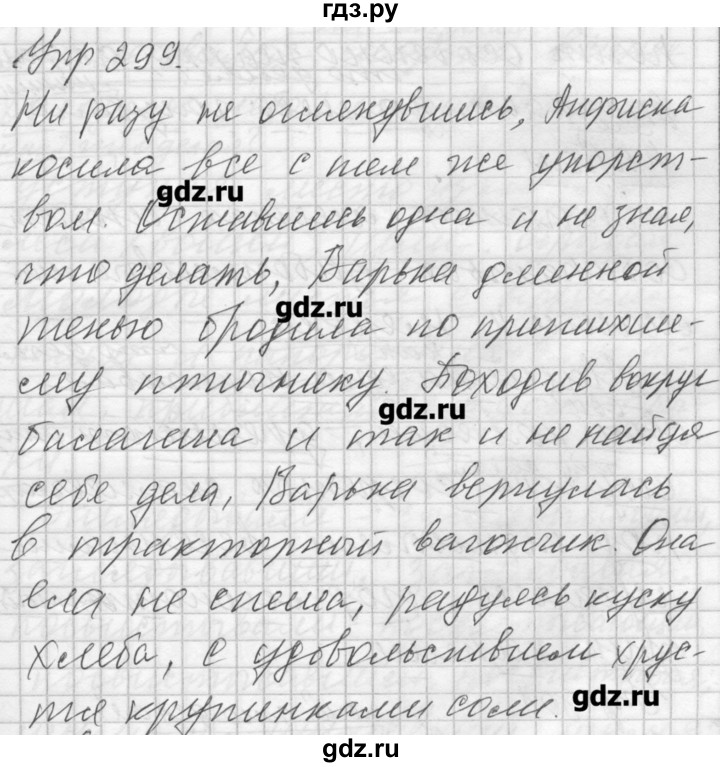 гдз.ру
Упр 299.
Ни разу не оглянувшись, Анфиска
косила все с тем же упорст-
gdz.ru
вом. Оставшись одна и не зная,
что делать, Варька длинной
gdz.ru
тенью бродила по притихше-
му птичнику. Походив вокруг
gdz.ru
балагана и так и не найдя
себе дела, Варька вернулась
в тракторный вагончик. Она
ела не спеша, радуясь куску
хлеба, с удовольствием хрус-
gdz.ru
тя крупинками соли.
gdz.ru